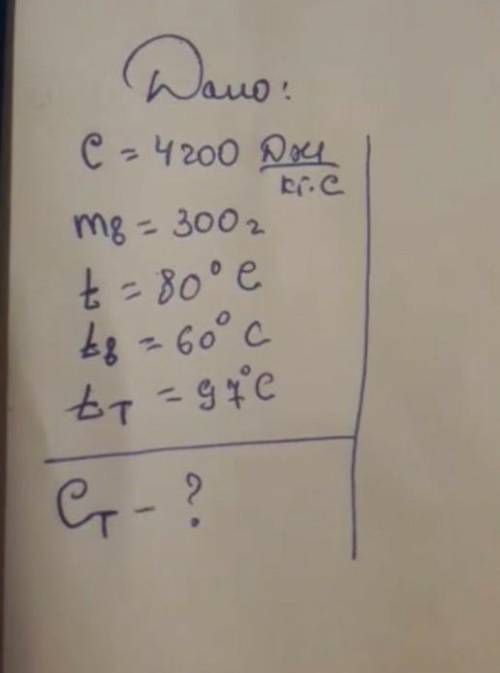 Дано:
C = 4200 Дж/кг·С
mв = 300г
t = 80°C
tв = 60°C
tт = 97°C
Cт - ?